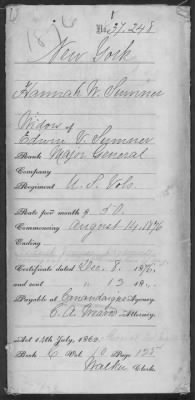 No. 37.248
New York
Hannah W. Sumner
Widow of
Edwin V. Sumner
Rank Major General
Company
Regiment U.S. Vols.
Rate per month $ 50.
Commencing August 14, 1876
Ending
Certificate dated Dec. 8. 1876,
and sent " 13 187 .
Payable at Canandaigua Agency.
E. A. Attorney.
Act 14th July, 1862.
Book C Vol. 10 Page 125
Walker Clerk.